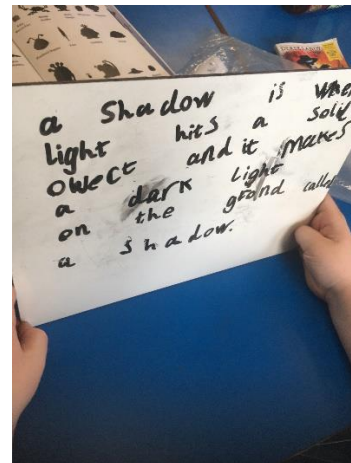 a Shadow is when
light hits a solid
owect and it makes
a dark light
on the grond called
a shadow.